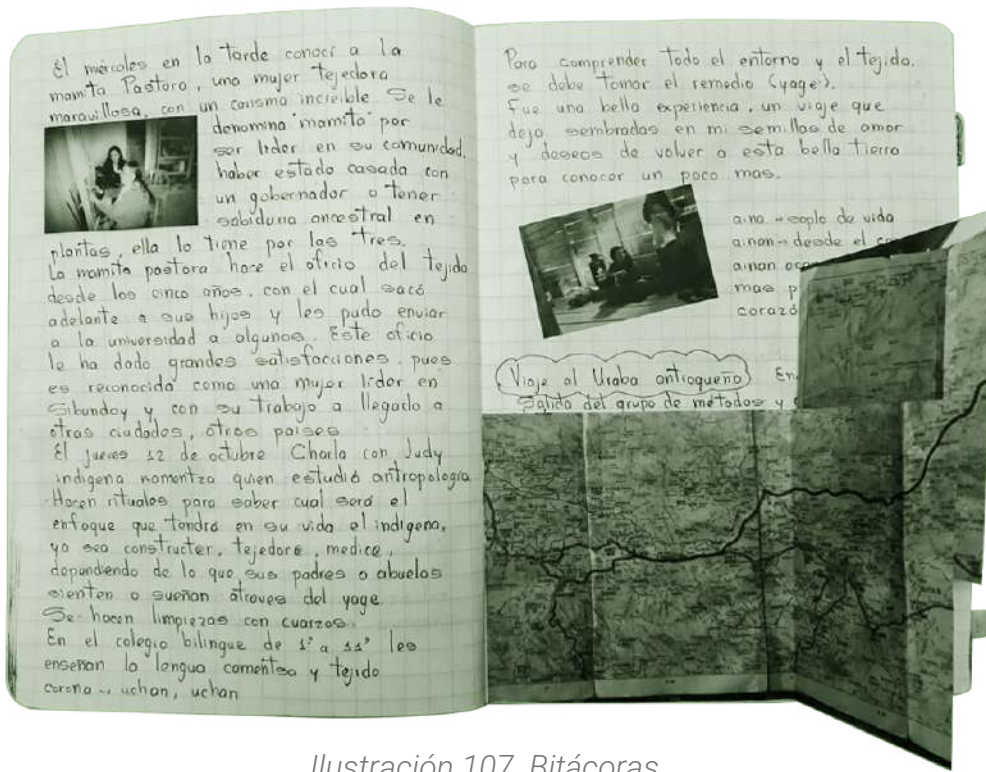 El miércoles en la tarde conocí a la
mamita Pastora, una mujer tejedora
maravillosa, con un carisma increible. Se le
denomina "mamita" por
ser lider en su comunidad,
haber estado casada con
un gobernador o tener
sabiduria ancestral en
plantas, ella lo tiene por las tres.
La mamita pastora hace el oficio del tejido
desde los cinco años, con el cual sacó
adelante a sus hijos y les pudo enviar
a la universidad a algunos. Este oficio
le ha dado grandes satisfacciones, pues
es reconocida como una mujer lider en
Sibundoy y con su trabajo a llegado a
otras ciudades, otros paises.
El jueves 12 de octubre Charla con Judy
indigena quien estudió antropologia
Hacen rituales para saber cual será el
enfoque que tendrá en su vida el indigena,
ya sea constructer, tejedora, medica,
dependiendo de lo que sus padres o abuelos
sienten o sueñan átraves del yage.
Se hacen limpiezas con cuarzos.
En el colegio bilingue de 1° a 11° les
enseñan la lengua camentsa y tejido
corona → uchan, uchan
Para comprender todo el entorno y el tejido,
se debe tomar el remedio (yage).
Fue una bella experiencia, un viaje que
deja sembradas en mi semillas de amor
y deseos de volver a esta bella tierra
para conocer un poco mas.
aina → soplo de vida
ainan → desde el
ainan
mas
Viaje al Uraba antioqueño
Salida del grupo de metodos y
Ilustración 107. Bitácoras